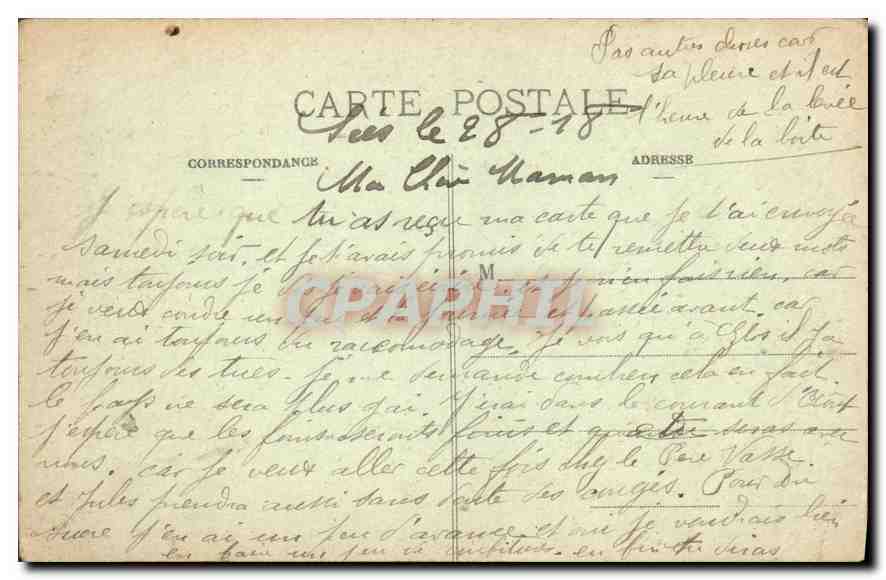 Pas autres choses car
sa pleure et il est
l'heure de la levée
de la boîte
CARTE POSTALE
le 28-18
CORRESPONDANCE
ADRESSE
Ma Chère Maman
J'espère que tu as reçue ma carte que je t'ai envoyée
samedi soir, et je t'avais promis de te remettre deux mots
M
mais toujours je rien, car
je veux coudre un avant. car
j'en ai toujours du raccomodage. Je vois qu'à Glos il y a
toujours des tués. Je me demande combien cela en fait.
le pays ne sera plus gai. J'irai dans le courant d'Août
j'espère que les foins seronts finis et que tu seras avec
nous. car je veux aller cette fois chez le Père Vasse
et Jules prendra aussi sans doute des congés. Pour du
sucre j'en ai un peu d'avance et oui je voudrais bien
en faire un peu de confitures. en
CPAPHIL